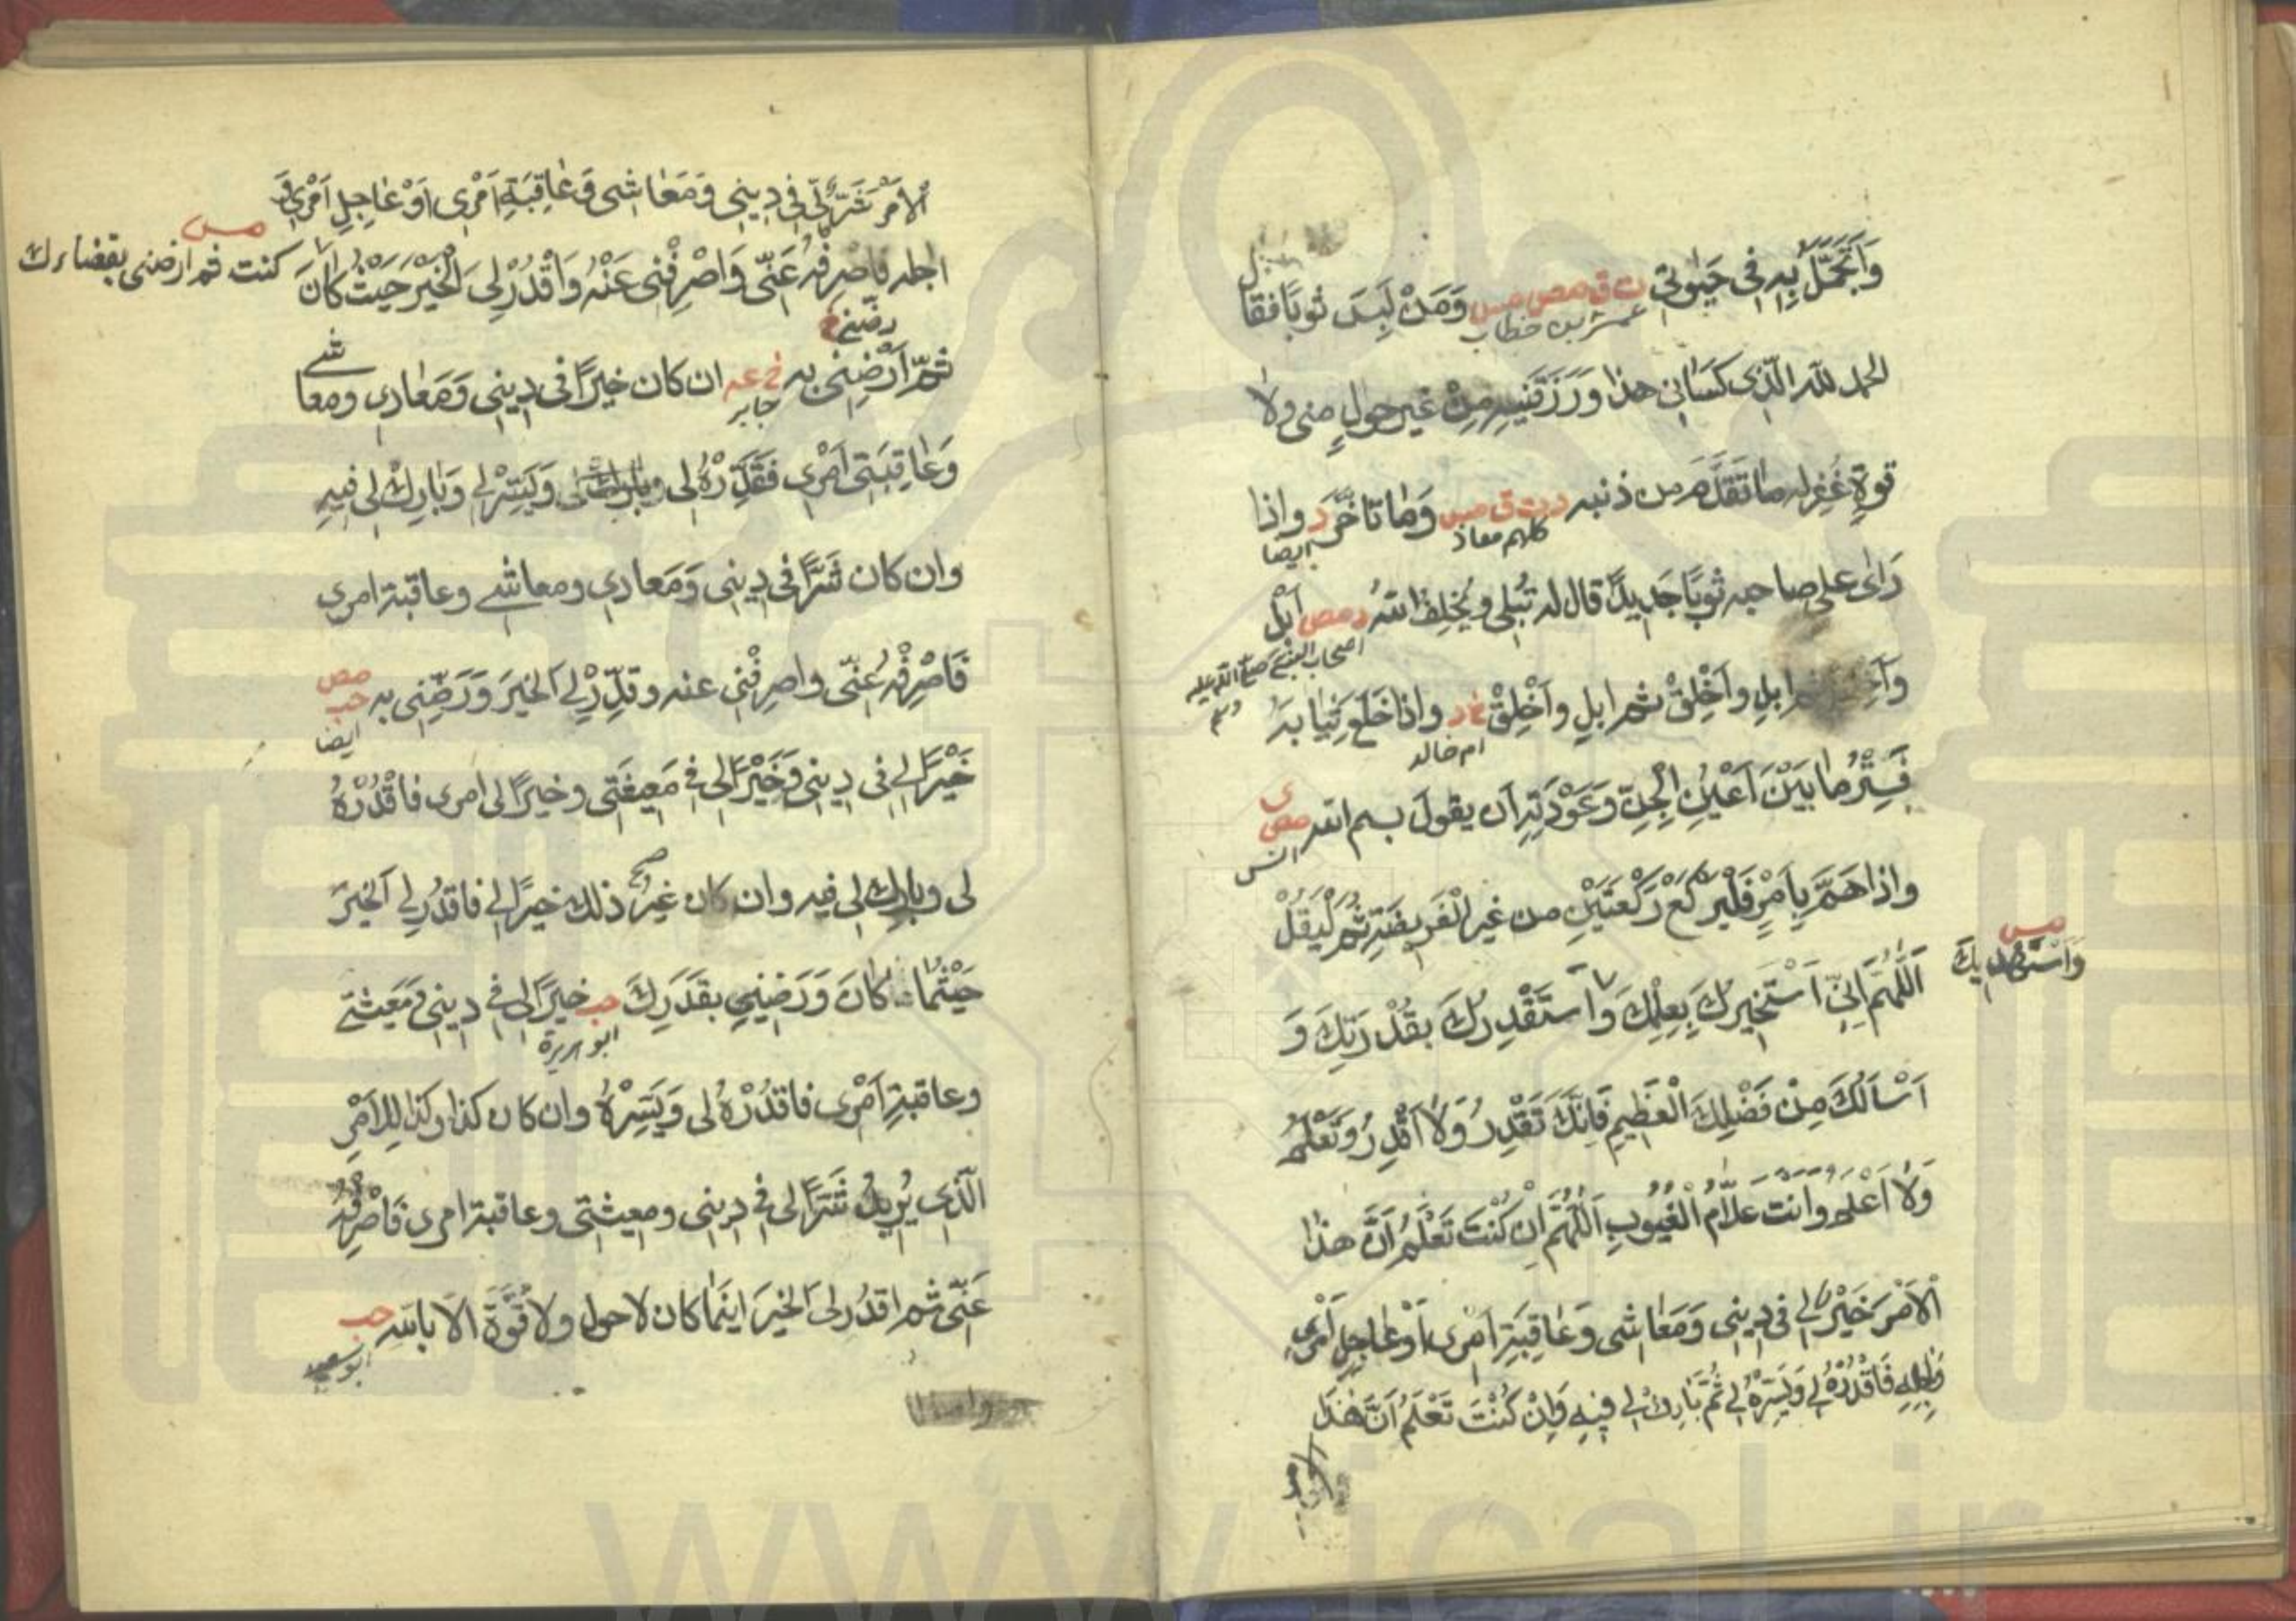 وَاَتَجَمَّلُ بِهِ فِي حَيٰوتِي ت ق مص مس وَمَنْ لَبِسَ ثوبًا فقال
عمر بن خطاب
الحمد لله الّذى كَسَانِى هذا وَرَزَقَنِيهِ مِنْ غيرِ حولٍ منى ولا
قوةٍ غُفِرَ له ما تَقَدَّمَ من ذنبه د ت ق مس وَما تاَخَّرَ د واذا
كلهم معاذ ايضا
رَاٰى على صاحبه ثَوبًا جَدِيدًا قال له تُبْلِى ويُخْلِفُ اللهُ د مص اَبْلِ
اصحاب النبي صلى الله عليه وسلم
وَاَخْلِقْ ثم ابلِ واَخْلِقْ ثم ابلِ واَخْلِقْ خ د واذا خَلَعَ ثِيَابَهُ
ام خالد
فَسِتْرُ ما بَيْنَ اَعْيُنِ الْجِنِّ وَعَوْرَتِهِ اَن يقولَ بسم الله مص ى
انس
واذا هَمَّ بِاَمْرٍ فَلْيَرْكَعْ رَكْعَتَيْنِ من غيرِ الْفَرِيضَةِ ثُمَّ لْيَقُلْ
اَللّٰهُمَّ اِنِّى اَسْتَخِيرُكَ بِعِلْمِكَ وَاَسْتَقْدِرُكَ بِقُدْرَتِكَ وَ
مس
وَاَسْتَهْدِيكَ
اَسْاَلُكَ مِنْ فَضْلِكَ الْعَظِيمِ فَاِنَّكَ تَقْدِرُ وَلَا اَقْدِرُ وَتَعْلَمُ
وَلَا اَعْلَمُ وَاَنْتَ عَلَّامُ الْغُيُوبِ اَللّٰهُمَّ اِنْ كُنْتَ تَعْلَمُ اَنَّ هذا
الْاَمْرَ خَيْرٌ لِى فى دِينِى وَمَعَاشِى وَعَاقِبَةِ اَمْرِى اَوْ عَاجِلِ اَمْرِى
وَاٰجِلِهِ فَاقْدُرْهُ لِى وَيَسِّرْهُ لِى ثُمَّ بَارِكْ لِى فِيهِ وَاِنْ كُنْتَ تَعْلَمُ اَنَّ هٰذَا
الْاَمْرَ شَرٌّ لِى فى دِينِى وَمَعَاشِى وَعَاقِبَةِ اَمْرِى اَوْ عَاجِلِ اَمْرِى وَ
اٰجله فاصرفهُ عَنِّى وَاصْرِفْنِى عَنْهُ وَاقْدُرْ لِىَ الْخَيْرَ حَيْثُ كَانَ
مس
كنت ثم ارضنى بقضاءك
رضّنى خ
ثُمَّ اَرْضِنِى به خ عه ان كان خيرًا فى دِينِى وَمَعَادِى ومعاشى
جابر
وَعَاقِبَتِى اَمْرِى فَقَدِّرْهُ لى وَيَسِّرْهُ لى وَبَارِكْ لى فيه
وان كان شَرًّا فى دِينِى وَمَعادِى ومعاشى وعاقبة امرى
فَاصْرِفْهُ عَنِّى واصرِفْنى عنه وقدِّرْ لى الخيرَ وَرَضِّنِى به مص حب
ايضا
خَيْرًا لى فى دِينِى وَخَيْرًا لى فى مَعِيشَتِى وخيرًا لى امرى فاقْدُرْهُ
لى وبارك لى فيه وان كان غيرُ ذلك خيرًا لى فاقدُر لى الخيرَ
صح
حَيْثُمَا كَانَ وَرَضِّنِى بقَدَرِكَ حب خيرًا لى فى دينى ومَعيشتى
ابو هريرة
وعاقبةِ اَمْرِى فاقدُرْهُ لى وَيَسِّرْهُ وان كان كذا وكذا لِلاَمْرِ
الّذى يُرِيدُ شَرًّا لى فى دينى ومعيشتى وعاقبة امرى فَاصْرِفْهُ
عَنِّى ثم اقدُر لى الخيرَ اينما كان لا حول ولا قُوَّةَ الّا بالله حب
ابو سعيد
www.ical.ir